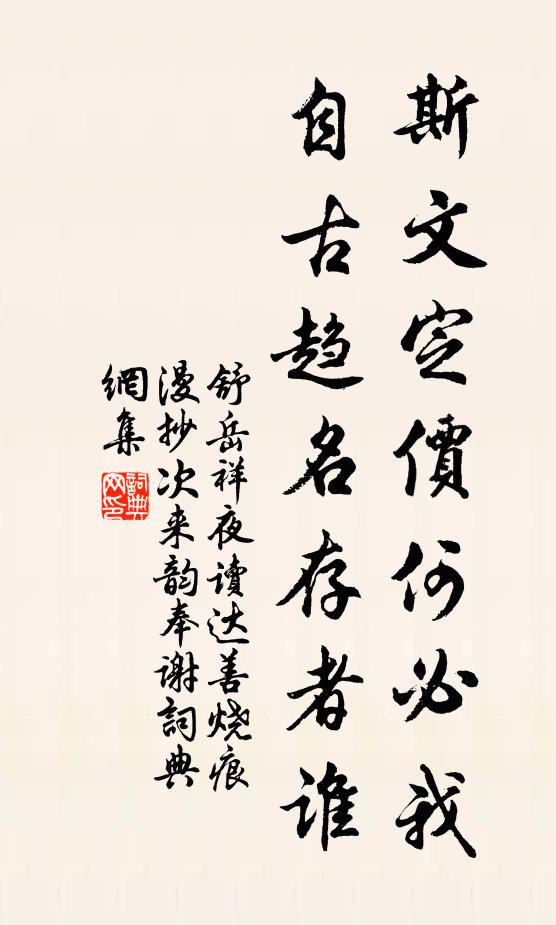 斯文定價何必我
自古趋名存者誰
舒岳祥夜讀达善燒痕
漫抄次来韵奉謝詞典
網集
詞典
网印